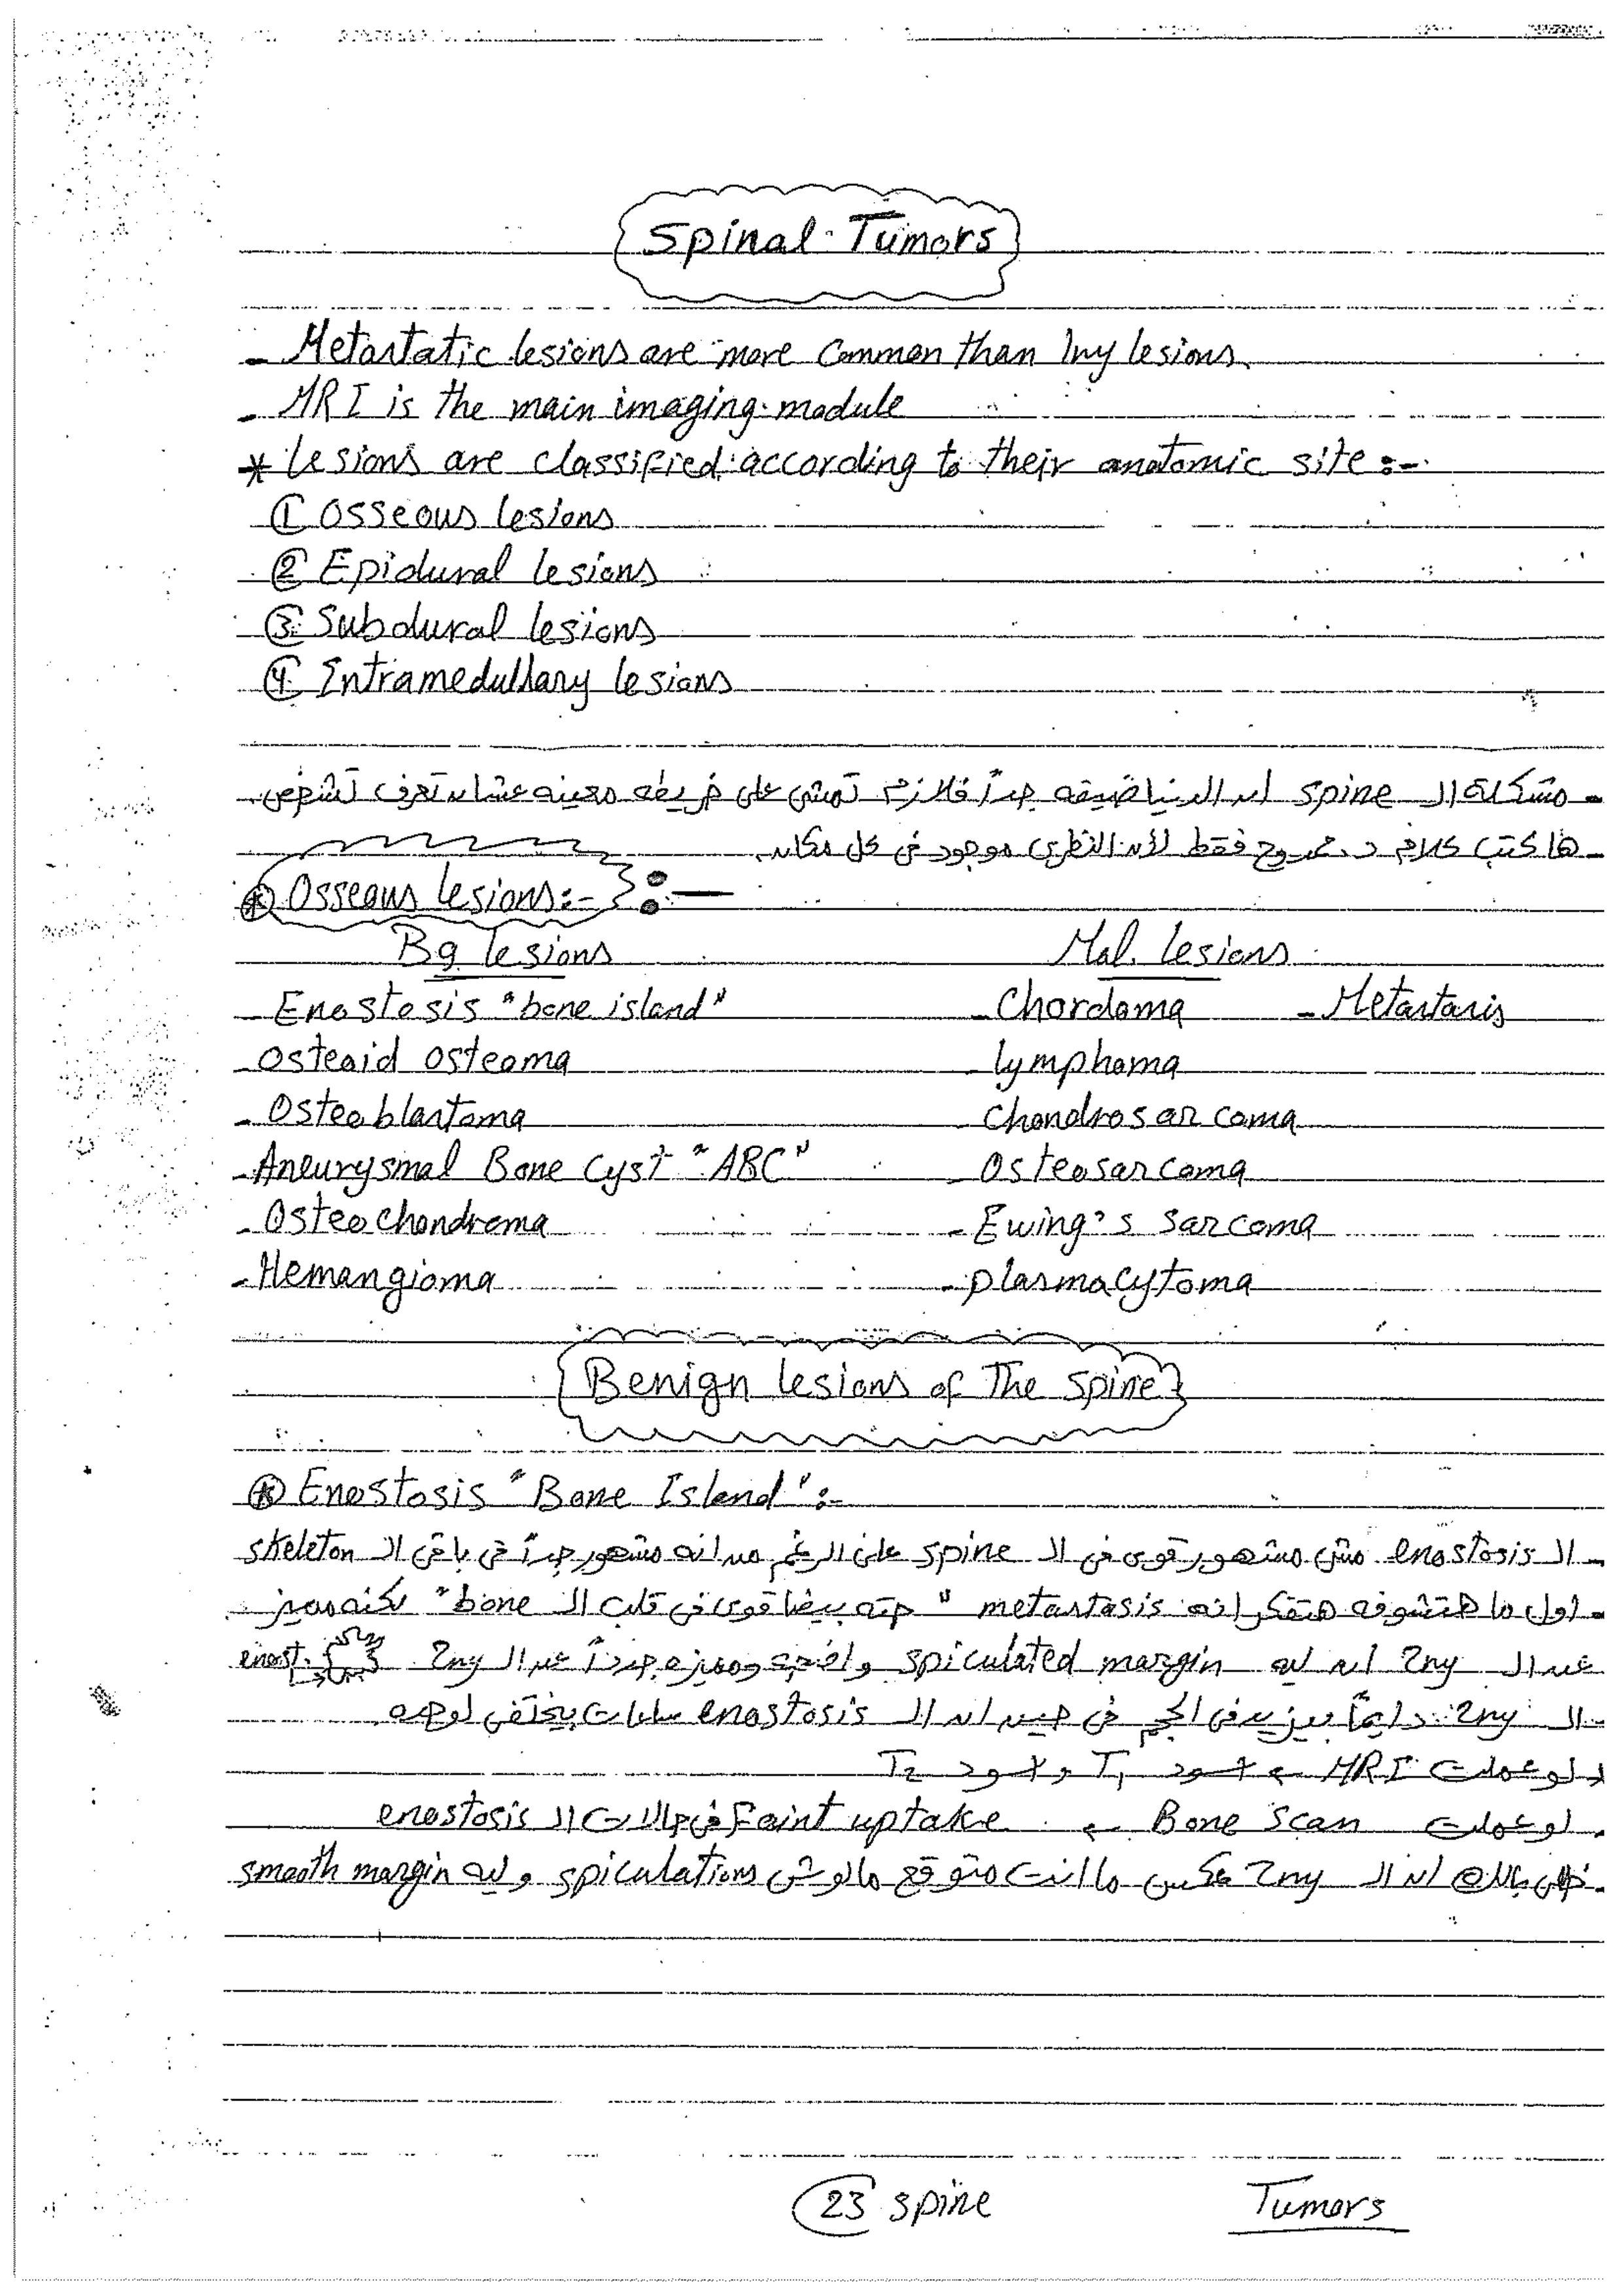 Spinal Tumors
- Metastatic lesions are more common than 1ry lesions.
- MRI is the main imaging module
* lesions are classified according to their anatomic site :-
① Osseous lesions
② Epidural lesions
③ Subdural lesions
④ Intramedullary lesions
- مشكلة الـ spine ان الدنيا ضيقه جداً فلازم تمشي على خريطه معينه عشان تعرف تشخص
- هاكتب كلام د. ممدوح فقط لأن النظري موجود في كل مكان.
* Osseous lesions :-
Bg lesions Mal. lesions
- Enostosis "bone island" - Chordoma - Metastasis
- Osteoid osteoma - lymphoma
- Osteoblastoma - Chondrosarcoma
- Aneurysmal Bone Cyst "ABC" - Osteosarcoma
- Osteochondroma - Ewing's sarcoma
- Hemangioma - plasmacytoma
Benign lesions of The spine
* Enostosis "Bone Island" :-
- الـ enostosis مش مشهور قوى فى الـ spine على الرغم من انه مشهور جداً في باقي الـ skeleton
- اول ما هتشوفه هتفكر انه metastasis " حته بيضا قوى في قلب الـ bone " لكنه مميز
عن الـ 2ry انه ليه spiculated margin واضحه ومميزه جداً عن الـ 2ry enost.
- الـ 2ry دايماً بيزيد فى الحجم في حين ان الـ enostosis ساعات بيختفي لوحده.
- لو عملت MRI ← اسود T1 واسود T2
- لو عملت Bone scan ← Faint uptake في حالات الـ enostosis
- خلي بالك ان الـ 2ry عكس ما انت متوقع مالوش spiculations وليه smooth margin
23 spine Tumors